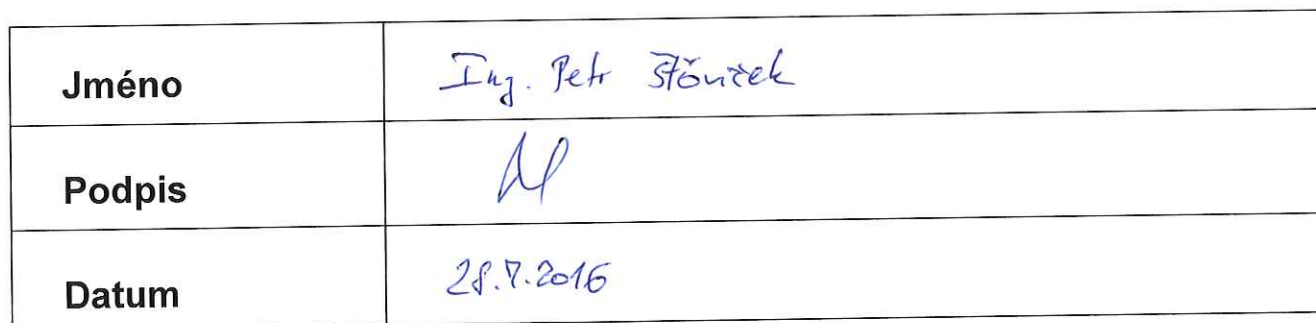 Jméno Ing. Petr Šťovíček
Podpis
Datum 28.7.2016